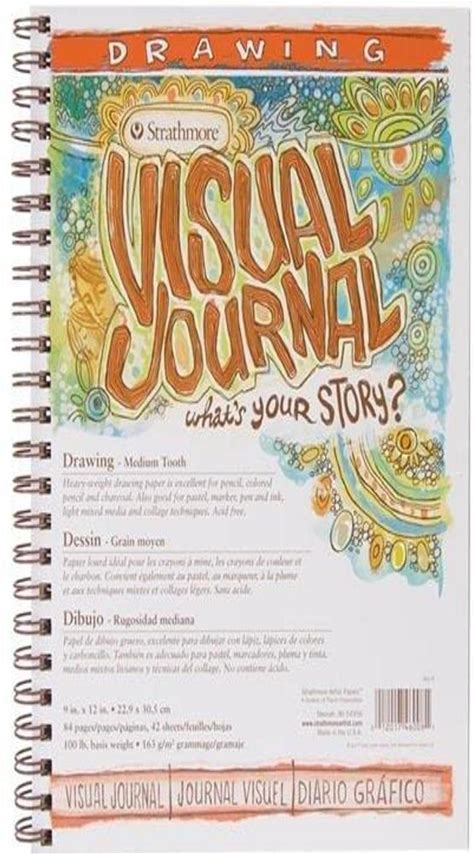 DRAWING
Strathmore
VISUAL
JOURNAL
what's YOUR STORY?
Drawing - Medium Tooth
Heavy-weight drawing paper is excellent for pencil, colored
pencil and charcoal. Also good for pastel, marker, pen and ink,
light mixed media and collage techniques. Acid free.
Dessin - Grain moyen
Papier lourd idéal pour les crayons à mine, les crayons de couleur et
le charbon. Convient également au pastel, au marqueur, à la plume
et aux techniques mixtes et collages légers. Sans acide.
Dibujo - Rugosidad mediana
Papel de dibujo grueso, excelente para dibujar con lápiz, lápices de colores
y carboncillo. También es adecuado para pastel, marcadores, pluma y tinta,
medios mixtos livianos y técnicas del collage. No contiene ácido.
9 in. x 12 in. • 22,9 x 30,5 cm
84 pages/pages/páginas, 42 sheets/feuilles/hojas
100 lb. basis weight • 163 g/m² grammage/gramaje
Strathmore Artist Papers™
www.strathmoreartist.com
Made in the U.S.A.
VISUAL JOURNAL | JOURNAL VISUEL | DIARIO GRÁFICO